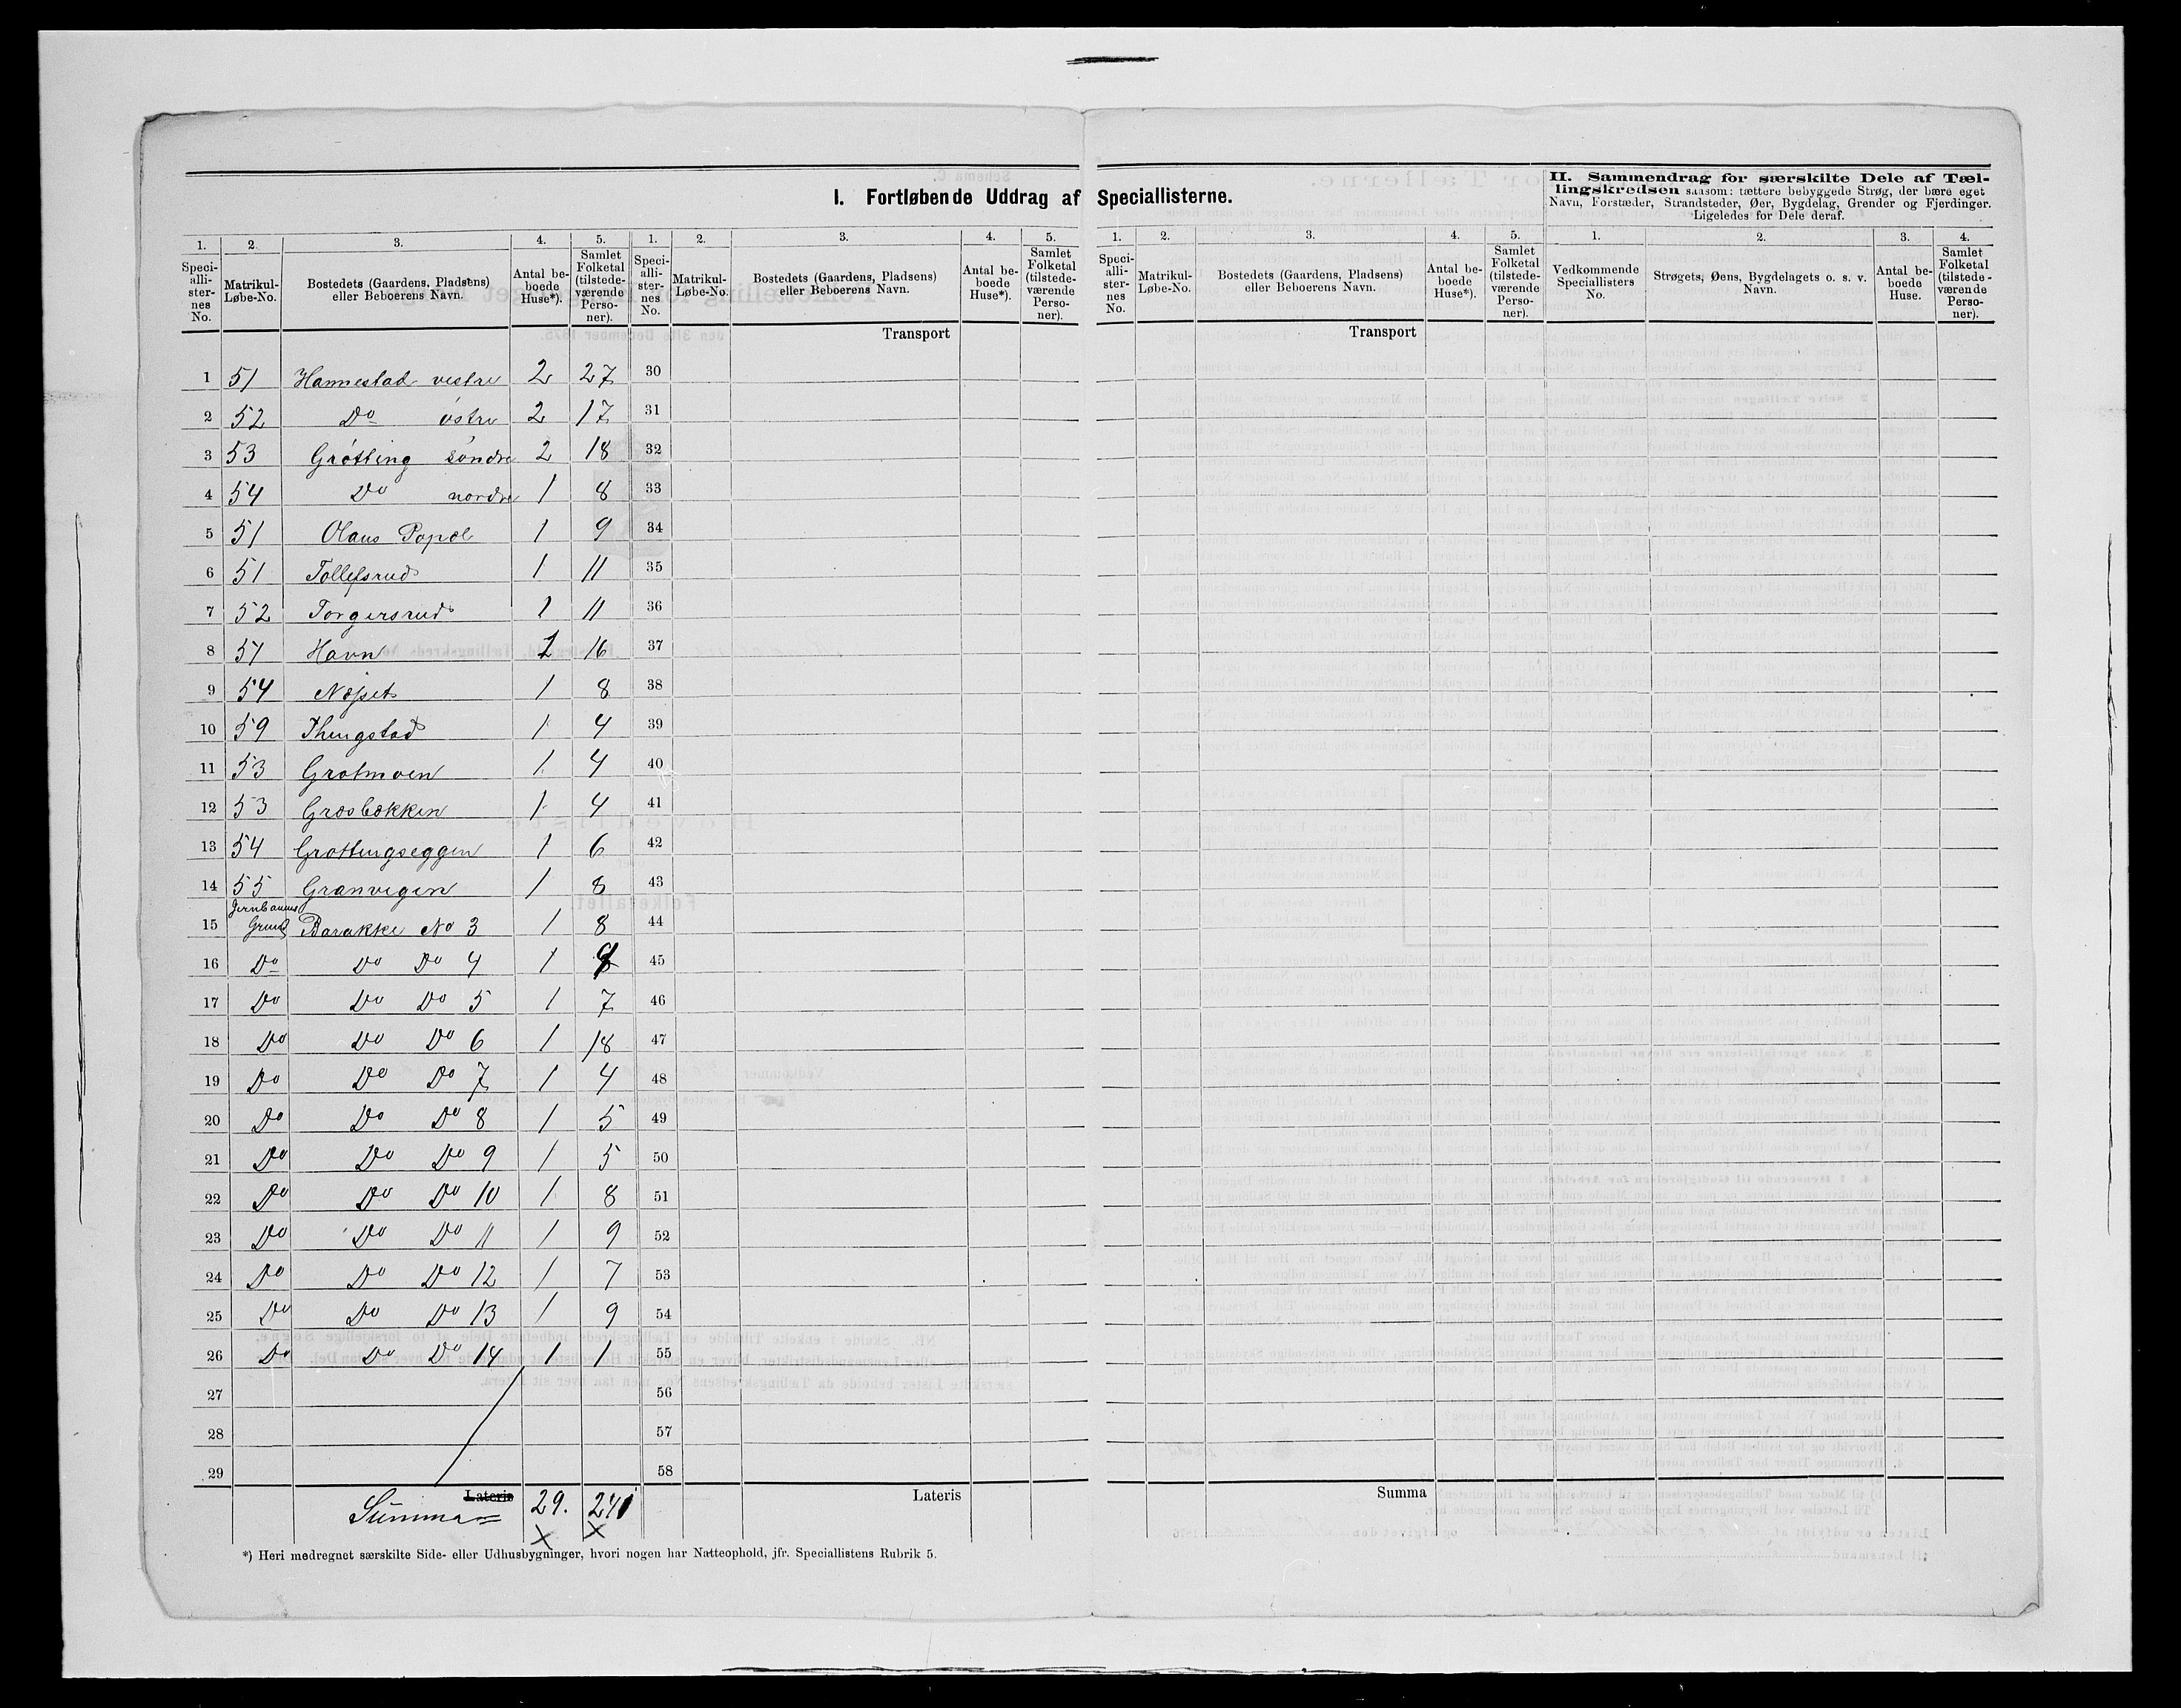 I. Fortløbende Uddrag af Speciallisterne.
II. Sammendrag for særskilte Dele af Tæl-
lingskredsen saasom: tættere bebyggede Strøg, der bære eget
Navn, Forstæder, Strandsteder, Øer, Bygdelag, Grender og Fjerdinger.
Ligeledes for Dele deraf.
1. 2. 3. 4. 5. 1. 2. 3. 4. 5. 1. 2. 3. 4. 5. 1. 2. 3. 4.
Speci-alli-ster-nes No. Matrikul-Løbe-No. Bostedets (Gaardens, Pladsens) eller Beboerens Navn. Antal be-boede Huse*). Samlet Folketal (tilstede-værende Perso-ner).
Speci-alli-ster-nes No. Matrikul-Løbe-No. Bostedets (Gaardens, Pladsens) eller Beboerens Navn. Antal be-boede Huse*). Samlet Folketal (tilstede-værende Perso-ner).
Speci-alli-ster-nes No. Matrikul-Løbe-No. Bostedets (Gaardens, Pladsens) eller Beboerens Navn. Antal be-boede Huse*). Samlet Folketal (tilstede-værende Perso-ner).
Vedkommende Speciallisters No. Strøgets, Øens, Bygdelagets o. s. v. Navn. Antal be-boede Huse. Samlet Folketal (tilstede-værende Perso-ner).
Transport Transport
1 51 Hannestad vestre 2 27 30
2 52 Do østre 2 17 31
3 53 Grøtting søndre 2 18 32
4 54 Do nordre 1 8 33
5 51 Olaus 1 9 34
6 51 Tollefsrud 1 11 35
7 52 Torgersrud 1 11 36
8 51 Havn 2 16 37
9 54 Næset 1 8 38
10 59 Thingstad 1 4 39
11 53 Grøtmoen 1 4 40
12 53 Græsbækken 1 4 41
13 54 Grøttingseggen 1 6 42
14 55 Granvegen 1 8 43
15 Jernbanens Grund Barakke No 3 1 8 44
16 Do Do Do 4 1 9 45
17 Do Do Do 5 1 7 46
18 Do Do Do 6 1 18 47
19 Do Do Do 7 1 4 48
20 Do Do Do 8 1 5 49
21 Do Do Do 9 1 5 50
22 Do Do Do 10 1 8 51
23 Do Do Do 11 1 9 52
24 Do Do Do 12 1 7 53
25 Do Do Do 13 1 9 54
26 Do Do Do 14 1 1 55
27 56
28 57
29 58
Lateris Summa 29. 241 Lateris Summa
*) Heri medregnet særskilte Side- eller Udhusbygninger, hvori nogen har Natteophold, jfr. Speciallistens Rubrik 5.